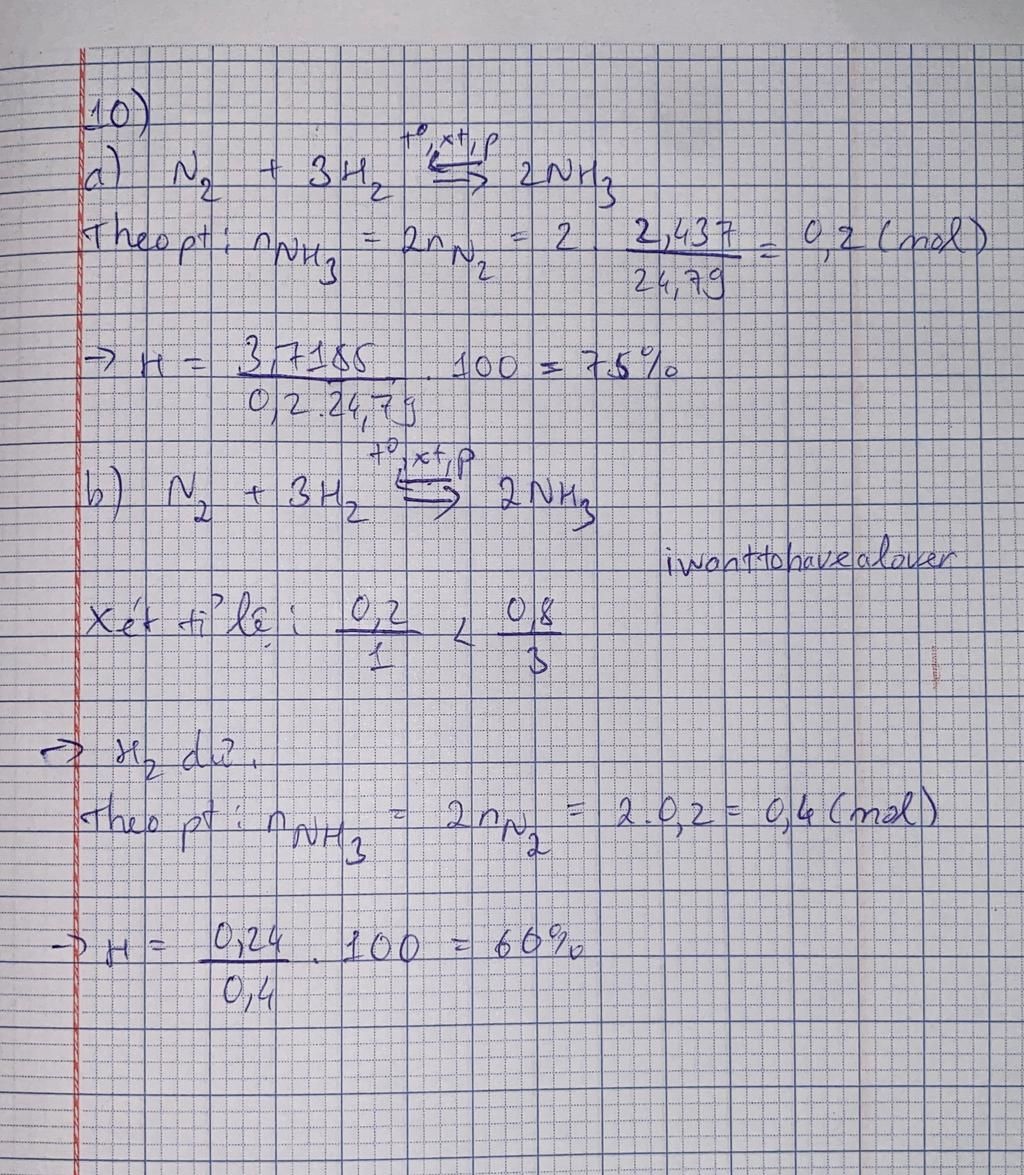 10)
a) N₂ + 3H₂ ⇌ (t°, xt, p) 2NH₃
Theo pt: nNH₃ = 2nN₂ = 2 . 2,437/24,79 = 0,2 (mol)
→ H = 3,7185/(0,2.24,79) . 100 = 75%
b) N₂ + 3H₂ ⇌ (t°, xt, p) 2NH₃
iwanttohavealover
Xét tỉ lệ: 0,2/1 < 0,8/3
→ H₂ dư.
Theo pt: nNH₃ = 2nN₂ = 2.0,2 = 0,4 (mol)
→ H = 0,24/0,4 . 100 = 60%